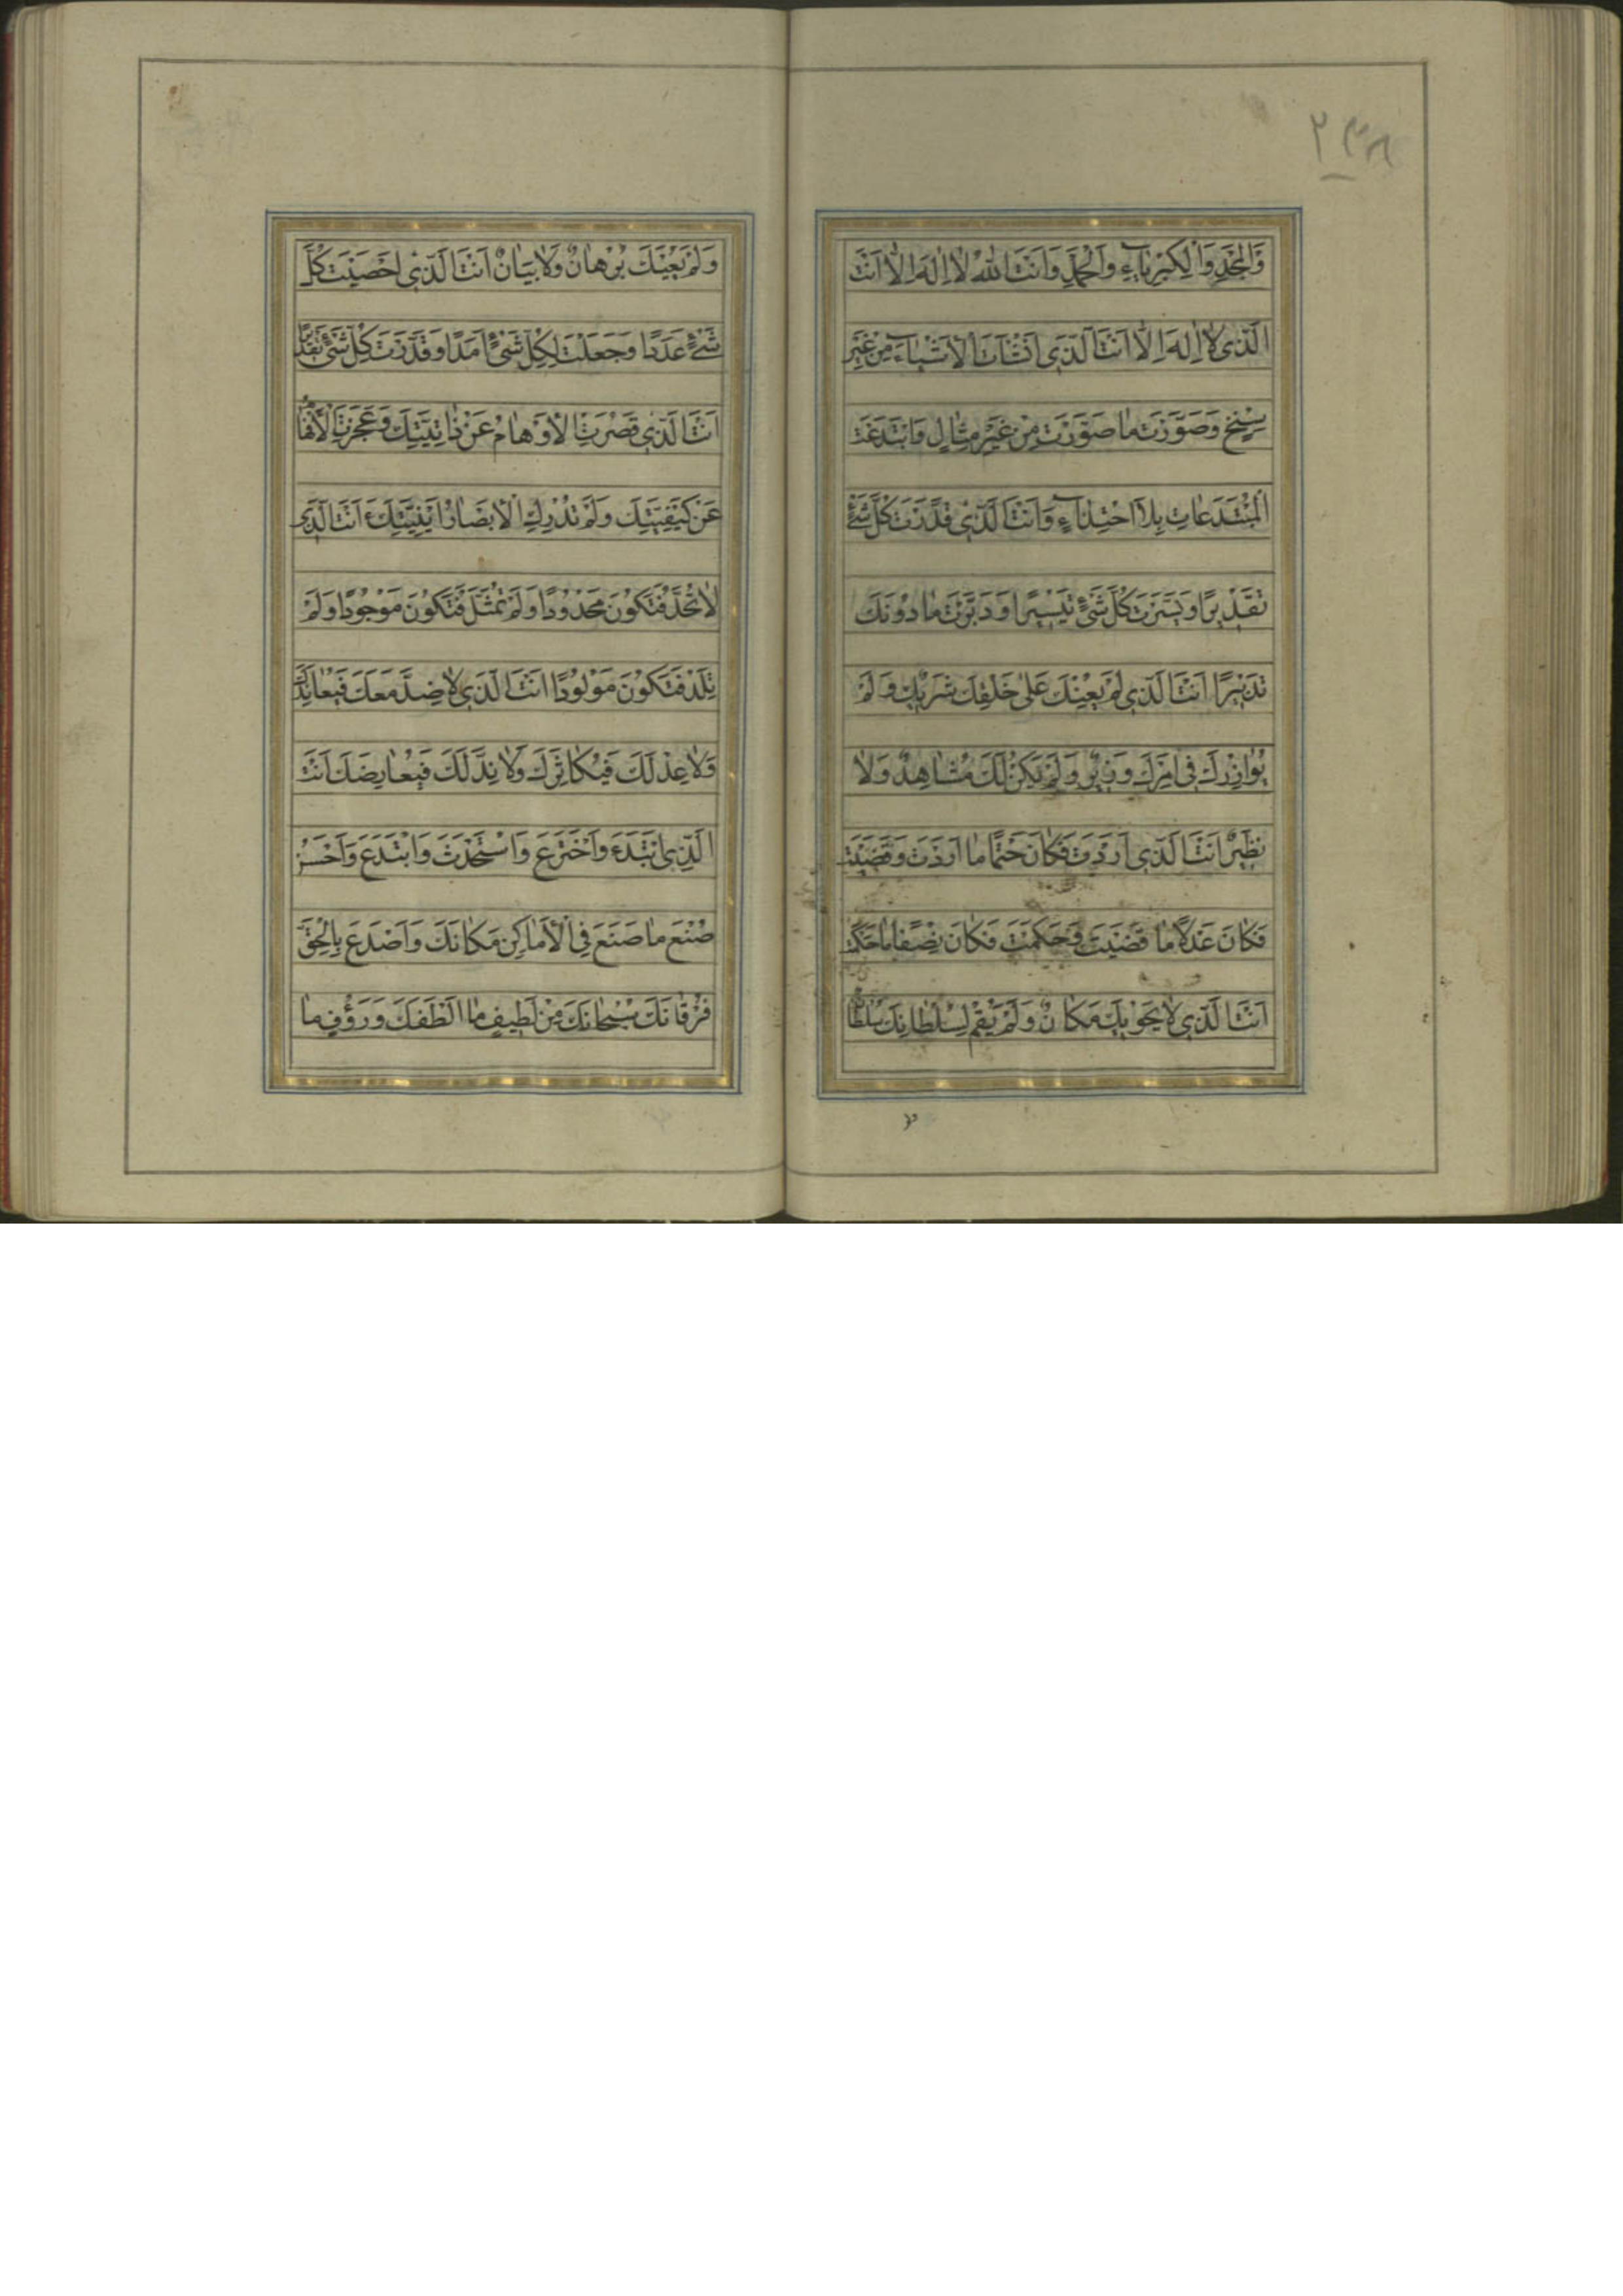 ٢٣٨
وَالْمَجْدِ وَالْكِبْرِيَاءِ وَالْحَمْدِ وَاَنْتَ اللهُ لَا اِلٰهَ اِلَّا اَنْتَ
الَّذِي لَا اِلٰهَ اِلَّا اَنْتَ الَّذِي اَنْشَاْتَ الْاَشْيَاءَ مِنْ غَيْرِ
سِنْخٍ وَصَوَّرْتَ مَا صَوَّرْتَ مِنْ غَيْرِ مِثَالٍ وَابْتَدَعْتَ
الْمُبْتَدَعَاتِ بِلَا احْتِذَاءٍ وَاَنْتَ الَّذِي قَدَّرْتَ كُلَّ شَيْءٍ
تَقْدِيرًا وَيَسَّرْتَ كُلَّ شَيْءٍ تَيْسِيرًا وَدَبَّرْتَ مَا دُونَكَ
تَدْبِيرًا اَنْتَ الَّذِي لَمْ يُعِنْكَ عَلٰى خَلْقِكَ شَرِيكٌ وَلَمْ
يُوَازِرْكَ فِي اَمْرِكَ وَزِيرٌ وَلَمْ يَكُنْ لَكَ مُشَاهِدٌ وَلَا
نَظِيرٌ اَنْتَ الَّذِي اَرَدْتَ فَكَانَ حَتْمًا مَا اَرَدْتَ وَقَضَيْتَ
فَكَانَ عَدْلًا مَا قَضَيْتَ وَحَكَمْتَ فَكَانَ نِصْفًا مَا حَكَمْتَ
اَنْتَ الَّذِي لَا يَحْوِيكَ مَكَانٌ وَلَمْ يَقُمْ لِسُلْطَانِكَ سُلْطَانٌ
وَلَمْ يُعْيِكَ بُرْهَانٌ وَلَا بَيَانٌ اَنْتَ الَّذِي اَحْصَيْتَ كُلَّ
شَيْءٍ عَدَدًا وَجَعَلْتَ لِكُلِّ شَيْءٍ اَمَدًا وَقَدَّرْتَ كُلَّ شَيْءٍ تَقْدِيرًا
اَنْتَ الَّذِي قَصُرَتِ الْاَوْهَامُ عَنْ ذَاتِيَّتِكَ وَعَجَزَتِ الْاَفْهَامُ
عَنْ كَيْفِيَّتِكَ وَلَمْ تُدْرِكِ الْاَبْصَارُ اَيْنِيَّتَكَ اَنْتَ الَّذِي
لَا تُحَدُّ فَتَكُونَ مَحْدُودًا وَلَمْ تُمَثَّلْ فَتَكُونَ مَوْجُودًا وَلَمْ
تَلِدْ فَتَكُونَ مَوْلُودًا اَنْتَ الَّذِي لَا ضِدَّ مَعَكَ فَيُعَانِدَكَ
وَلَا عِدْلَ لَكَ فَيُكَاثِرَكَ وَلَا نِدَّ لَكَ فَيُعَارِضَكَ اَنْتَ
الَّذِي ابْتَدَءَ وَاخْتَرَعَ وَاسْتَحْدَثَ وَابْتَدَعَ وَاَحْسَنَ
صُنْعَ مَا صَنَعَ فِي الْاَمَاكِنِ مَكَانَكَ وَاَصْدَعَ بِالْحَقِّ
فُرْقَانَكَ سُبْحَانَكَ مِنْ لَطِيفٍ مَا اَلْطَفَكَ وَرَؤُفٍ مَا